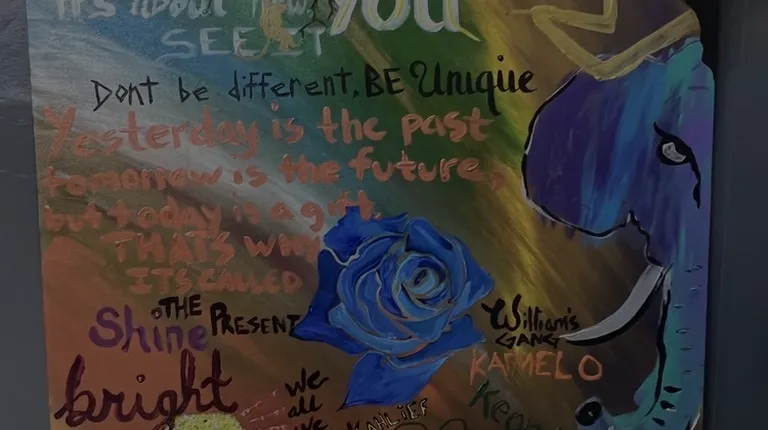 It's about how YOU
SEE IT
Dont be different, BE Unique
Yesterday is the past
tomorrow is the future,
but today is a gift.
THATS WHY
ITS CALLED
THE PRESENT
Shine
bright
William's
GANG
KAMELO
we
all